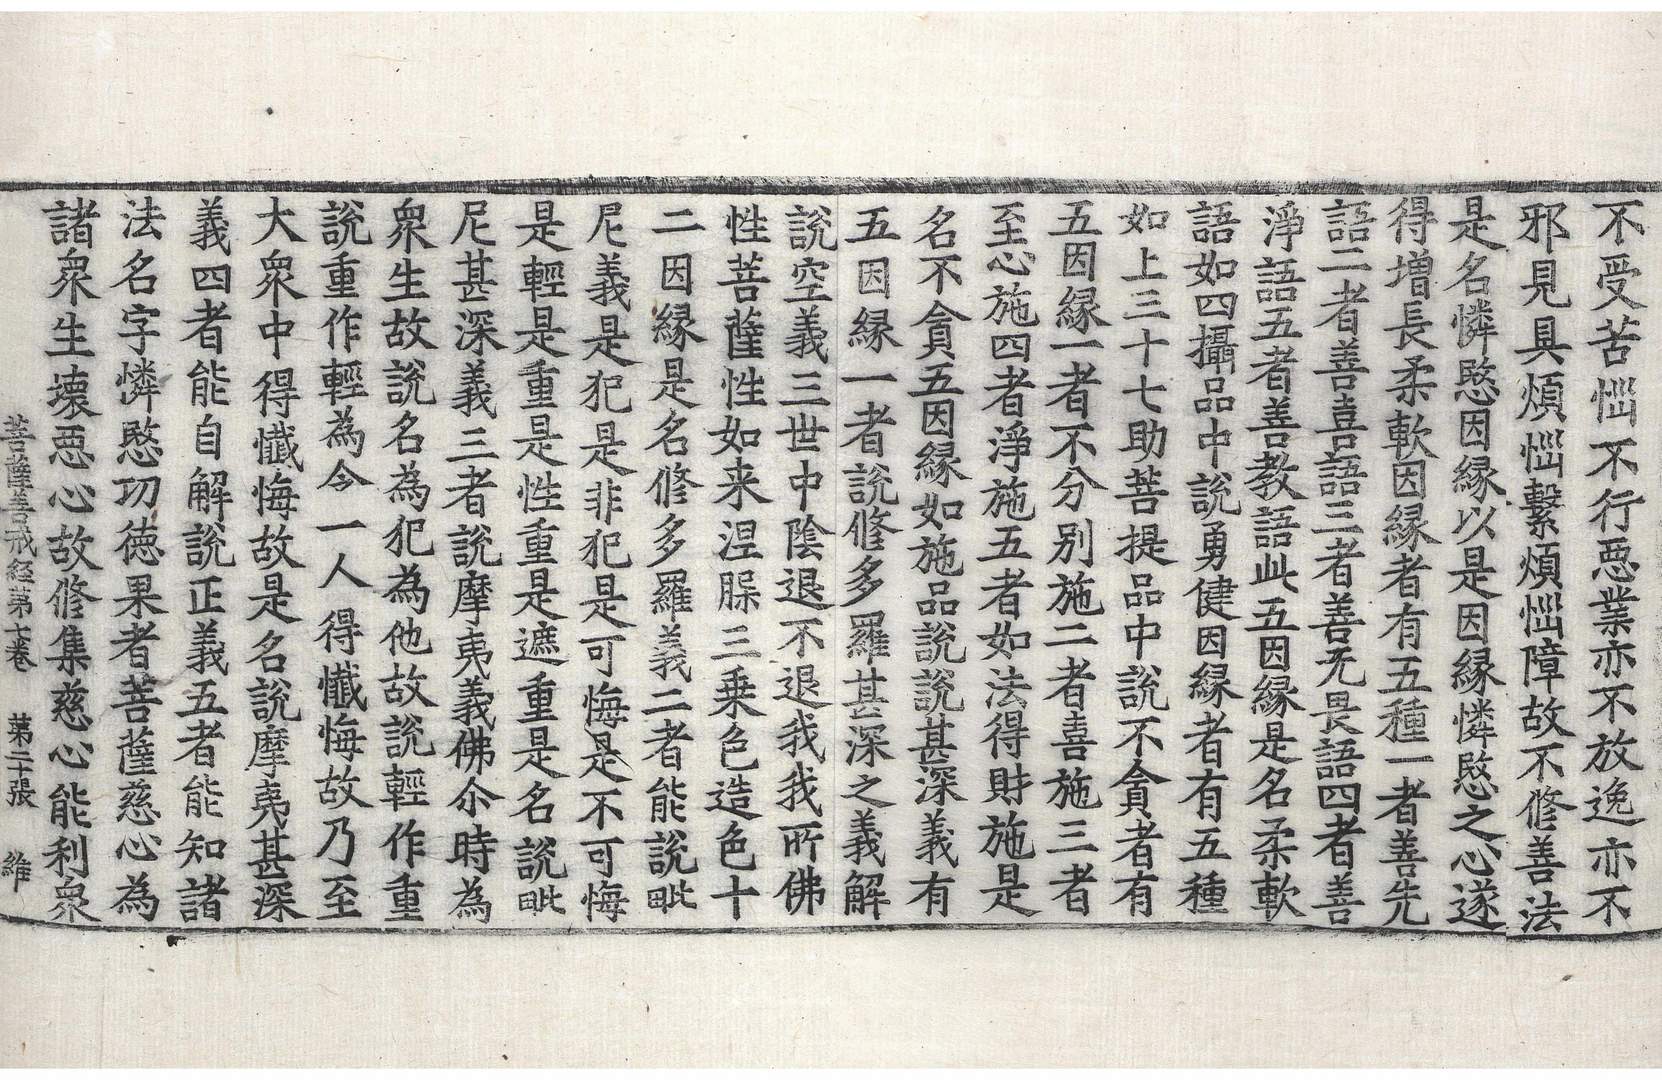 不受苦惱不行惡業亦不放逸亦不
邪見具煩惱繫煩惱障故不修善法
是名憐愍因緣以是因緣憐愍之心遂
得增長柔軟因緣者有五種一者善先
語二者善喜語三者善无畏語四者善
淨語五者善教語此五因緣是名柔軟
語如四攝品中說勇健因緣者有五種
如上三十七助菩提品中說不貪者有
五因緣一者不分別施二者喜施三者
至心施四者淨施五者如法得財施是
名不貪五因緣如施品說說甚深義有
五因緣一者說修多羅甚深之義解
說空義三世中陰退不退我我所佛
性菩薩性如来涅脲三乗色造色十
二因緣是名修多羅義二者能說毗
尼義是犯是非犯是可悔是不可悔
是輕是重是性重是遮重是名說毗
尼甚深義三者說摩夷義佛尒時為
衆生故說名為犯為他故說輕作重
說重作輕為令一人得懺悔故乃至
大衆中得懺悔故是名說摩夷甚深
義四者能自解說正義五者能知諸
法名字憐愍功德果者菩薩慈心為
諸衆生壞惡心故修集慈心能利衆
菩薩善戒經第七卷　第二十張　維